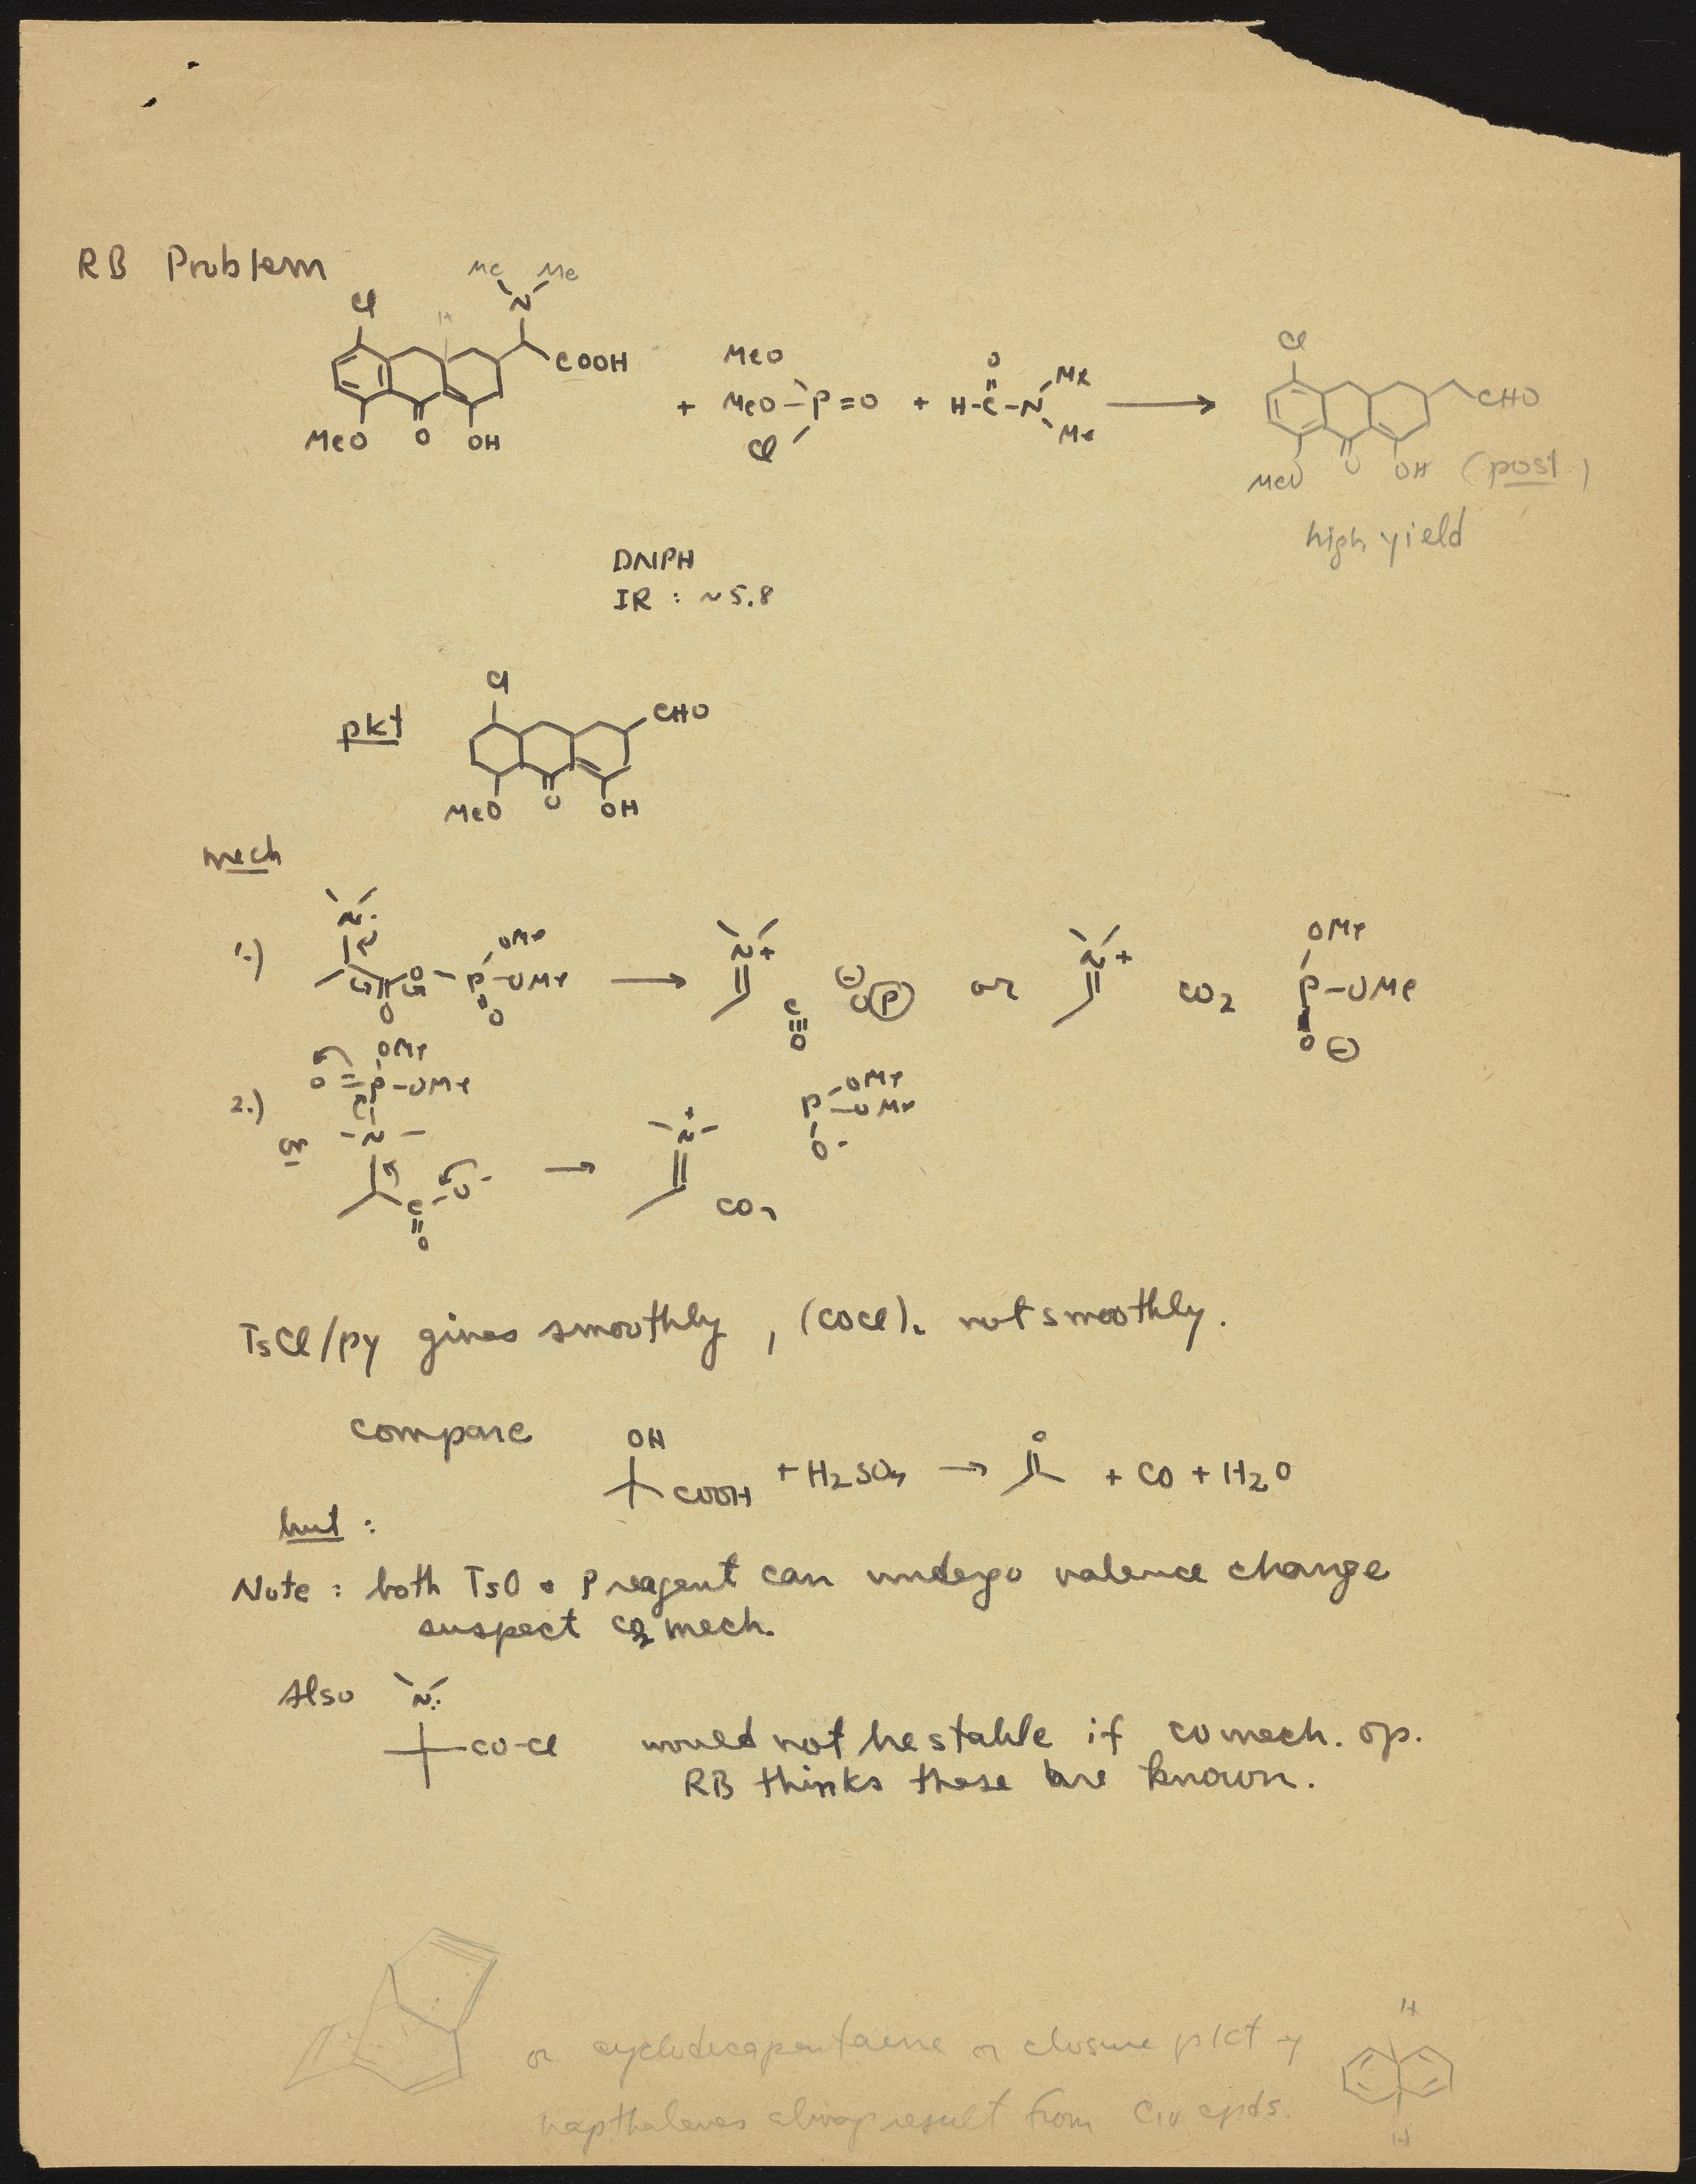 RB Problem
Me Me
N
Cl
H
COOH
MeO O OH
+
MeO
MeO-P=O
Cl
+
O
H-C-N
Me
Me
Cl
CHO
MeO O OH (post)
high yield
DNPH
IR : ~5.8
pkt
Cl
CHO
MeO O OH
mech
1.)
N:
O
O
P-OMe
OMe
O
N+
C
O
⊖
O(P)
or
N+
CO2
OMe
P-OMe
O ⊖
2.)
OMe
O=P-OMe
or
N
C-O-
O
N+
CO2
P-OMe
OMe
O-
TsCl/py gives smoothly, (COCl)2 not smoothly.
compare
OH
COOH
+ H2SO4 → O + CO + H2O
but :
Note : both TsO & P reagent can undergo valence change
suspect CO2 mech.
Also
N:
CO-Cl would not be stable if CO mech. op.
RB thinks these are known.
or cyclodecapentaene or closure pkt
H
napthalenes always result from C10 cpds.
H